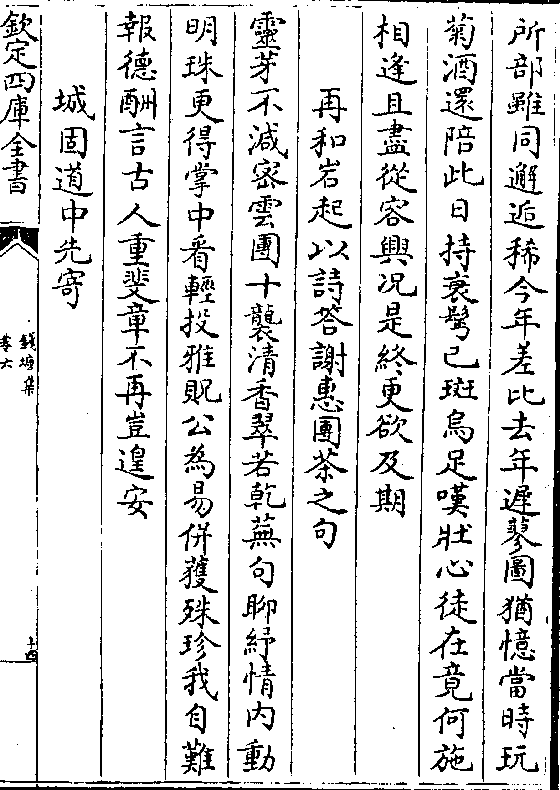 所部雖同邂逅稀今年差比去年遲蓼圖猶憶當時玩
菊酒還陪此日持衰鬢已斑烏足嘆壯心徒在竟何施
相逢且盡從容興况是終更欲及期
再和岩起以詩答謝惠團茶之句
靈芽不減密雲團十襲清香翠若乾蕪句聊紓情内動
明珠更得掌中看輕投雅貺公為易併獲殊珍我自難
報德酬言古人重斐章不再豈遑安
城固道中先寄
欽定四庫全書
錢塘集
卷六
十四